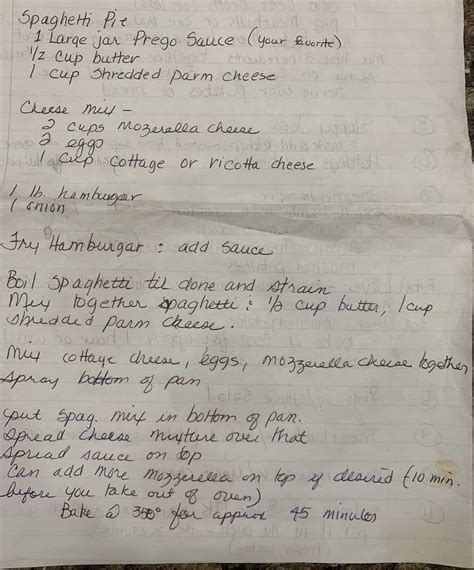 Spaghetti Pie
1 Large jar Prego Sauce (your favorite)
1/2 cup butter
1 cup shredded parm cheese
Cheese mix -
2 cups mozerella cheese
2 eggs
1 cup cottage or ricotta cheese
1 lb. hamburgar
1 onion
Fry Hamburgar : add sauce
Boil spaghetti til done and strain
Mix together spaghetti : 1/2 cup butter, 1 cup
shredded parm cheese.
Mix cottage cheese, eggs, mozzerella cheese together
spray bottom of pan
put spag. mix in bottom of pan.
spread cheese mixture over that
spread sauce on top
can add more mozzerella on top if desired (10 min.
before you take out of oven)
Bake @ 350° for approx 45 minutes